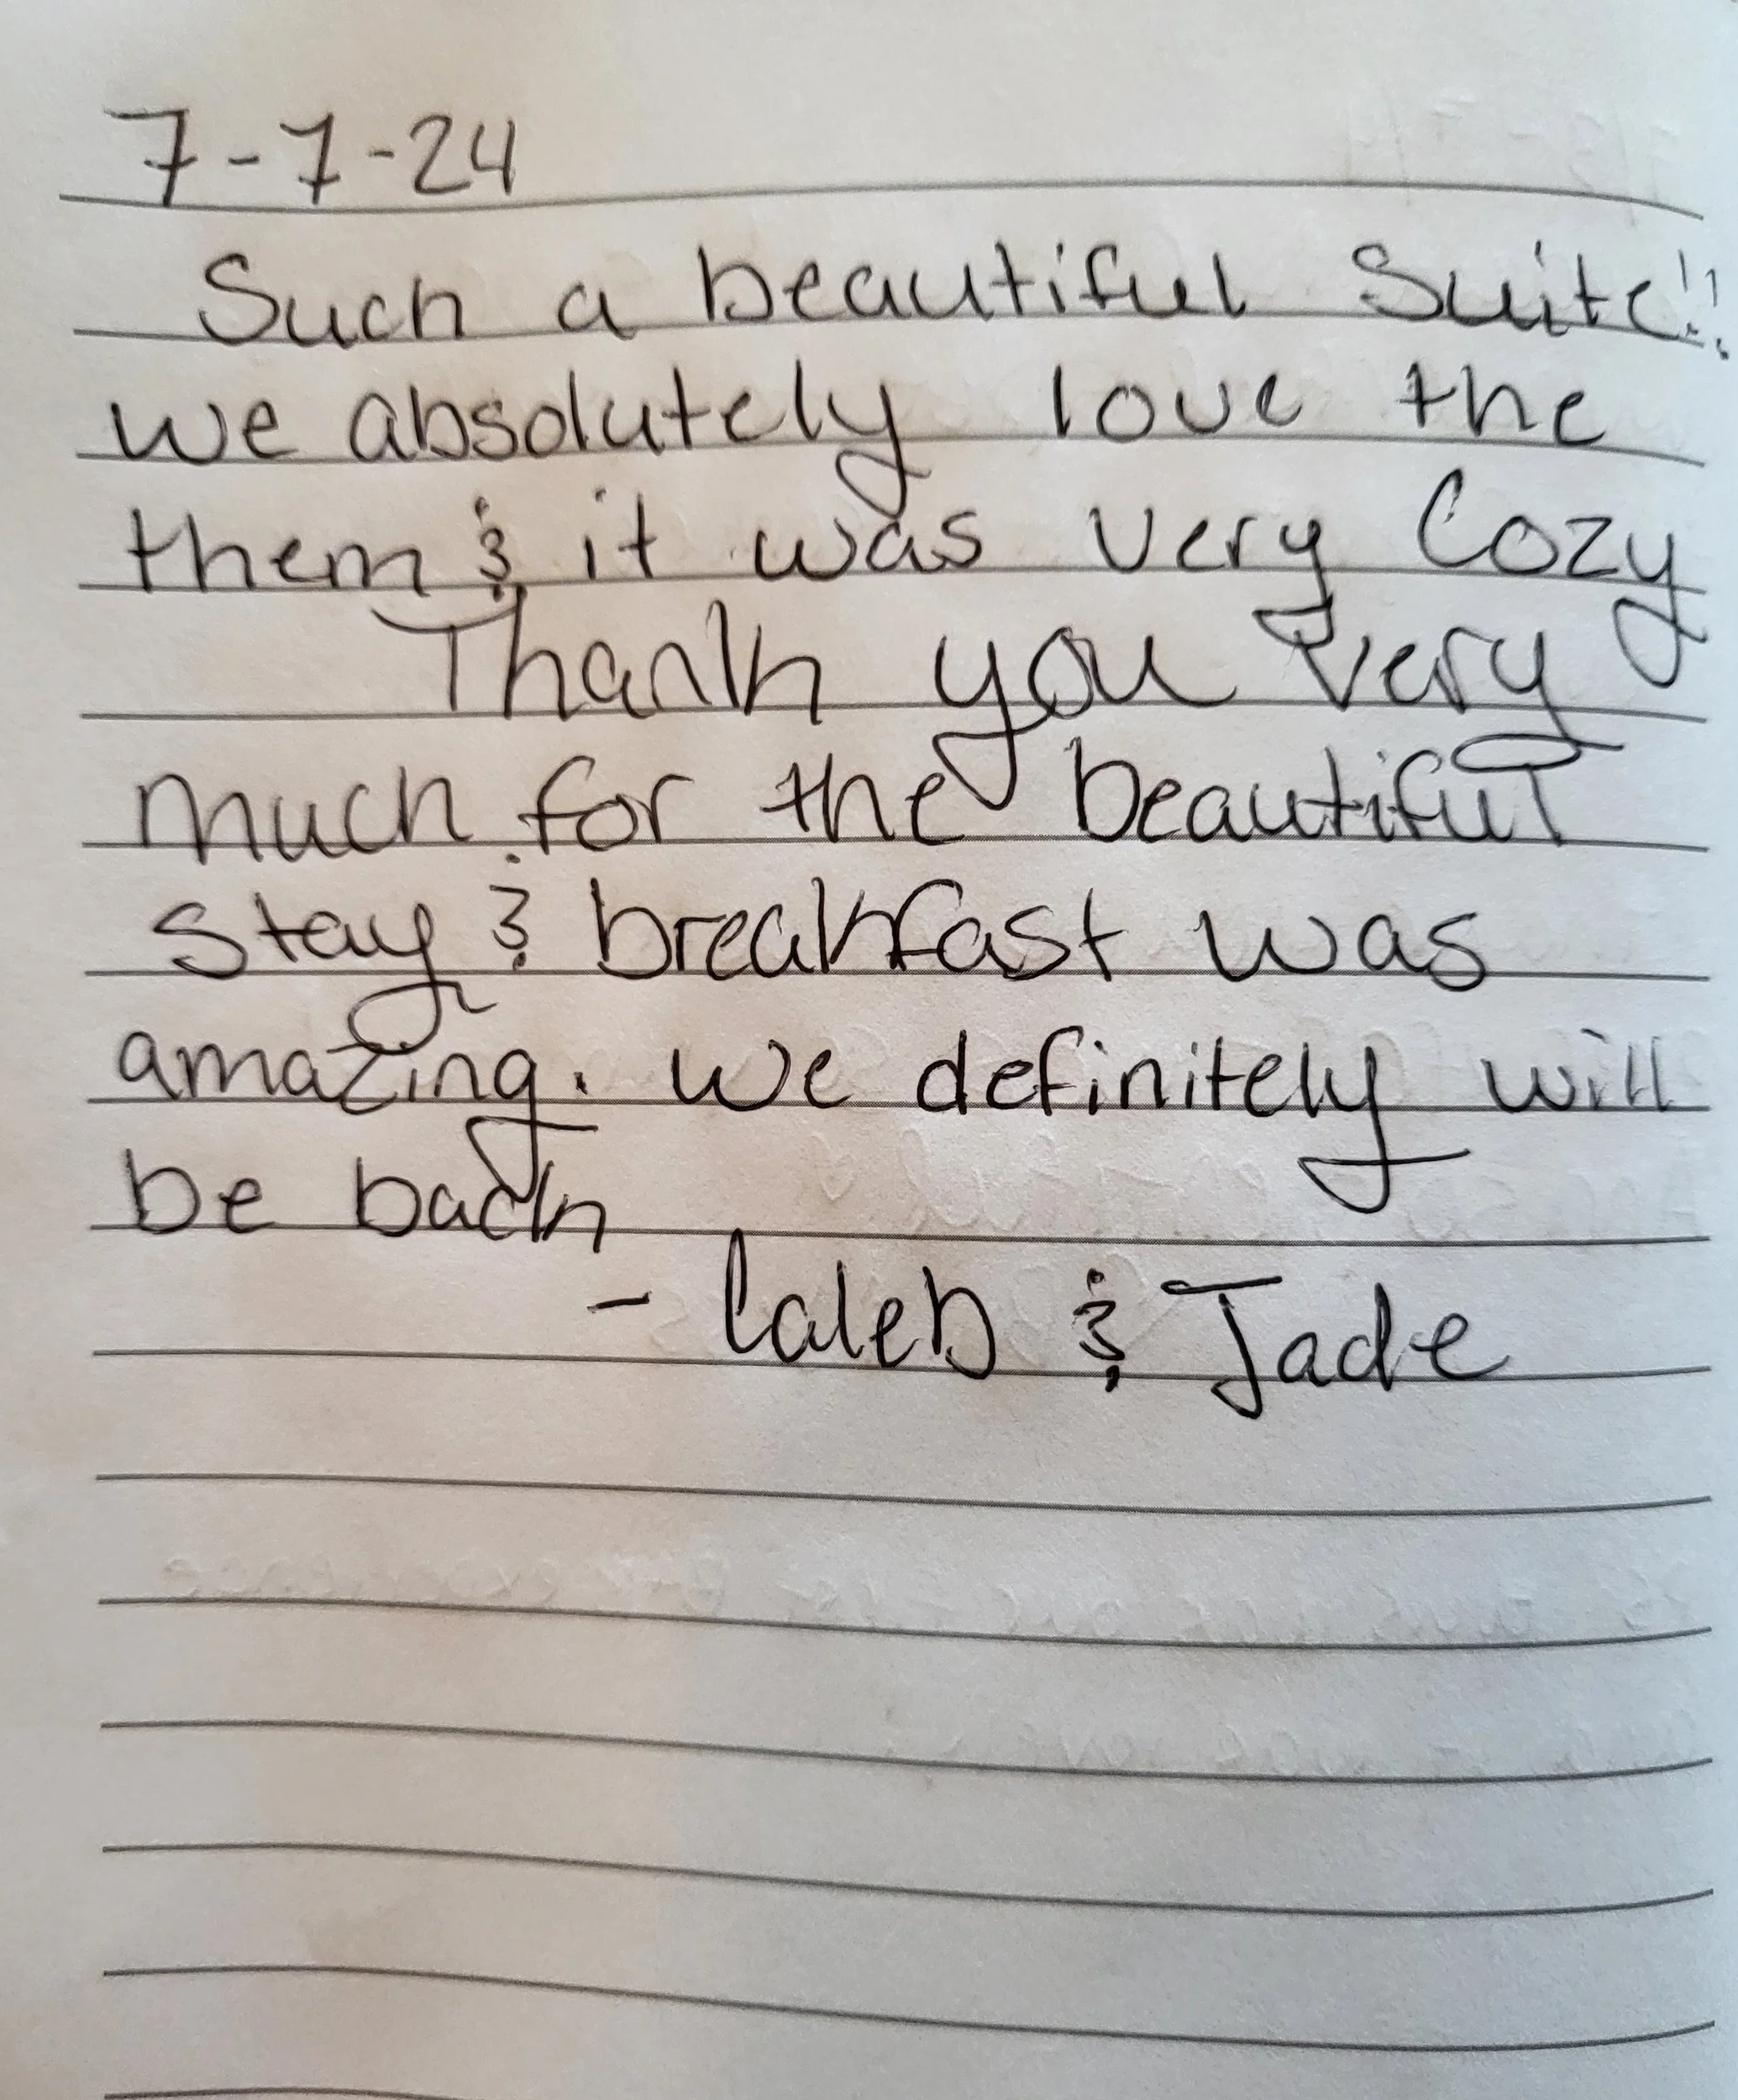 7-7-24
Such a beautiful Suite!!
we absolutely love the
them & it was very Cozy
Thank you very
much for the beautiful
stay & breakfast was
amazing. we definitely will
be back
- Caleb & Jade